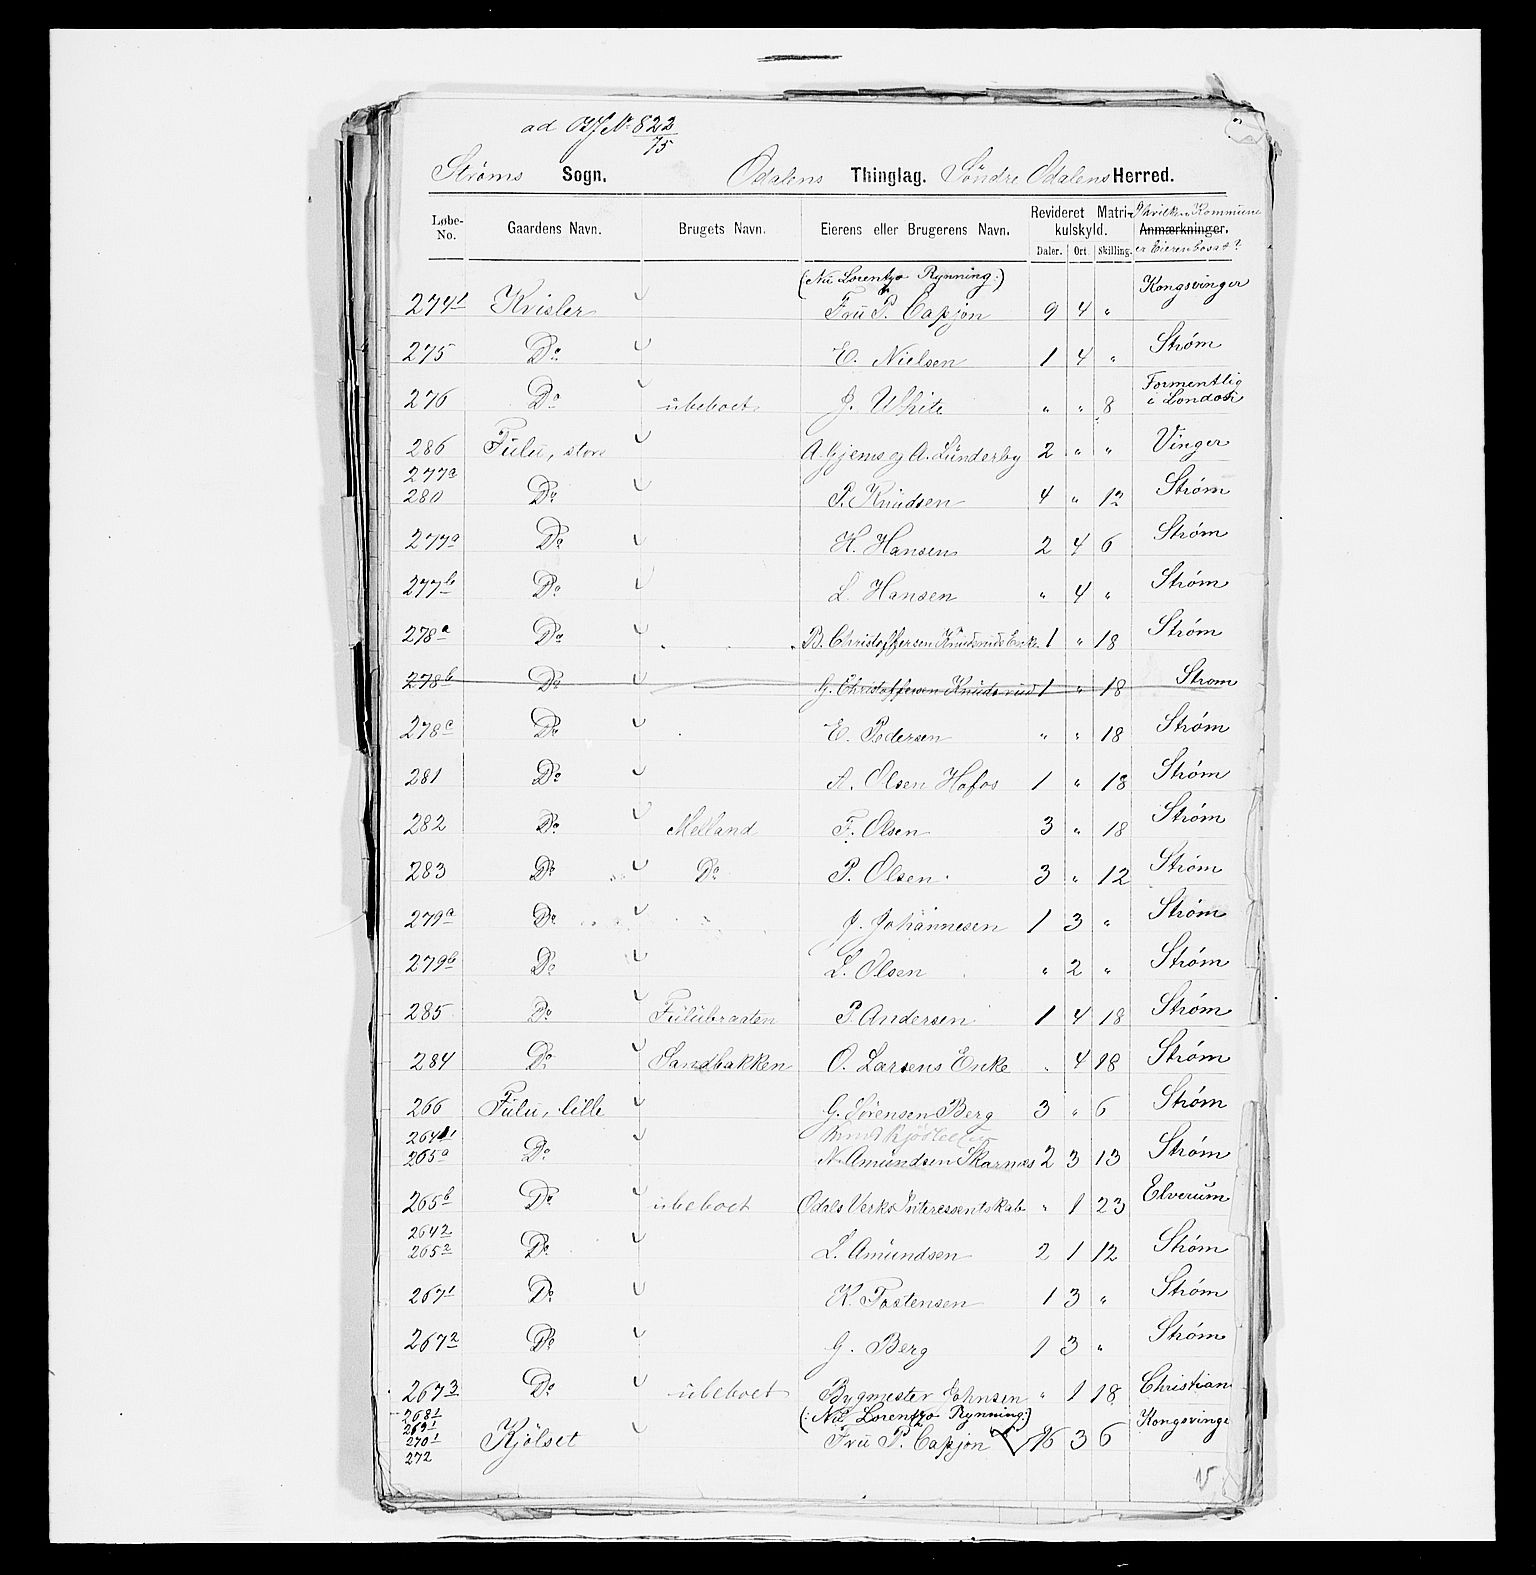 ad O.J.No 822/75
Strøms Sogn. Odalens Thinglag. Söndre Odalens Herred.
Løbe-No. Gaardens Navn. Brugets Navn. Eierens eller Brugerens Navn. Revideret Matrikulskyld. Daler. Ort. Skilling. Anmærkninger. I hvilken Kommune er Eieren bosat?
(Nu Lorentzo Rynning:)
274 1 Kvisler Fru P. Capjon 9 4 " Kongsvinger
275 Do E. Nielsen 1 4 " Strøm
276 Do ubeboet J. White " " 8 Formentlig i London
286 Fulu, store A. Gjems og A. Lunderby 2 " " Vinger
277a
280 Do P. Knudsen 4 " 12 Strøm
277a Do H. Hansen 2 4 6 Strøm
277b Do L. Hansen " 4 " Strøm
278a Do B. Christoffersen Knudsruds Enke 1 " 18 Strøm
278b Do G. Christoffersen Knudsrud 1 " 18 Strøm
278c Do E. Pedersen " " 18 Strøm
281 Do A. Olsen Hofos 1 " 18 Strøm
282 Do Melland F. Olsen 3 " 18 Strøm
283 Do Do P. Olsen 3 " 12 Strøm
279a Do J. Johannesen 1 3 " Strøm
279b Do L. Olsen " 2 " Strøm
285 Do Fulubraaten P. Andersen 1 4 18 Strøm
284 Do Sandbakken O. Larsens Enke " 4 18 Strøm
266 Fulu, lille G. Sörensen Berg 3 " 6 Strøm
264 1
265a Do N. Amundsen Skarnæs 2 3 13 Strøm
265b Do ubeboet Odals Verks Interessentskab " 1 23 Elverum
264 2
265 2 Do L. Amundsen 2 1 12 Strøm
267 1 Do K. Tostensen 1 3 " Strøm
267 2 Do G. Berg 1 3 " Strøm
267 3 Do ubeboet Bygmester Johnsen " 1 18 Christian
268 1 (: Nu Lorentzo Rynning:)
269 1
270 1 Kjölset Fru P. Capjon 16 3 6 Kongsvinge
272